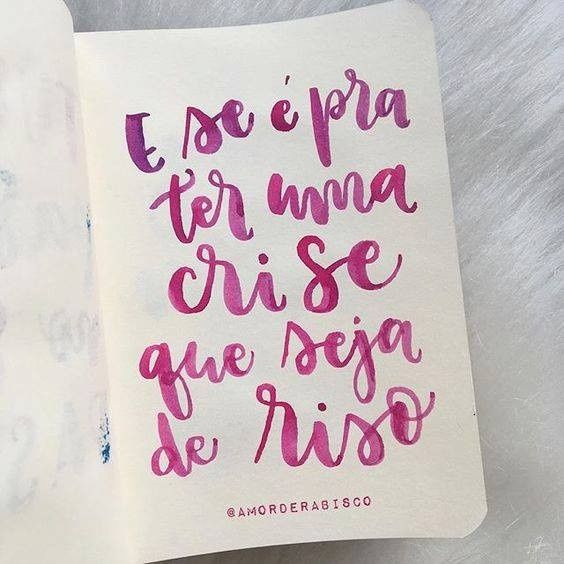 E se é pra
ter uma
crise
que seja
de riso
@AMORDERABISCO